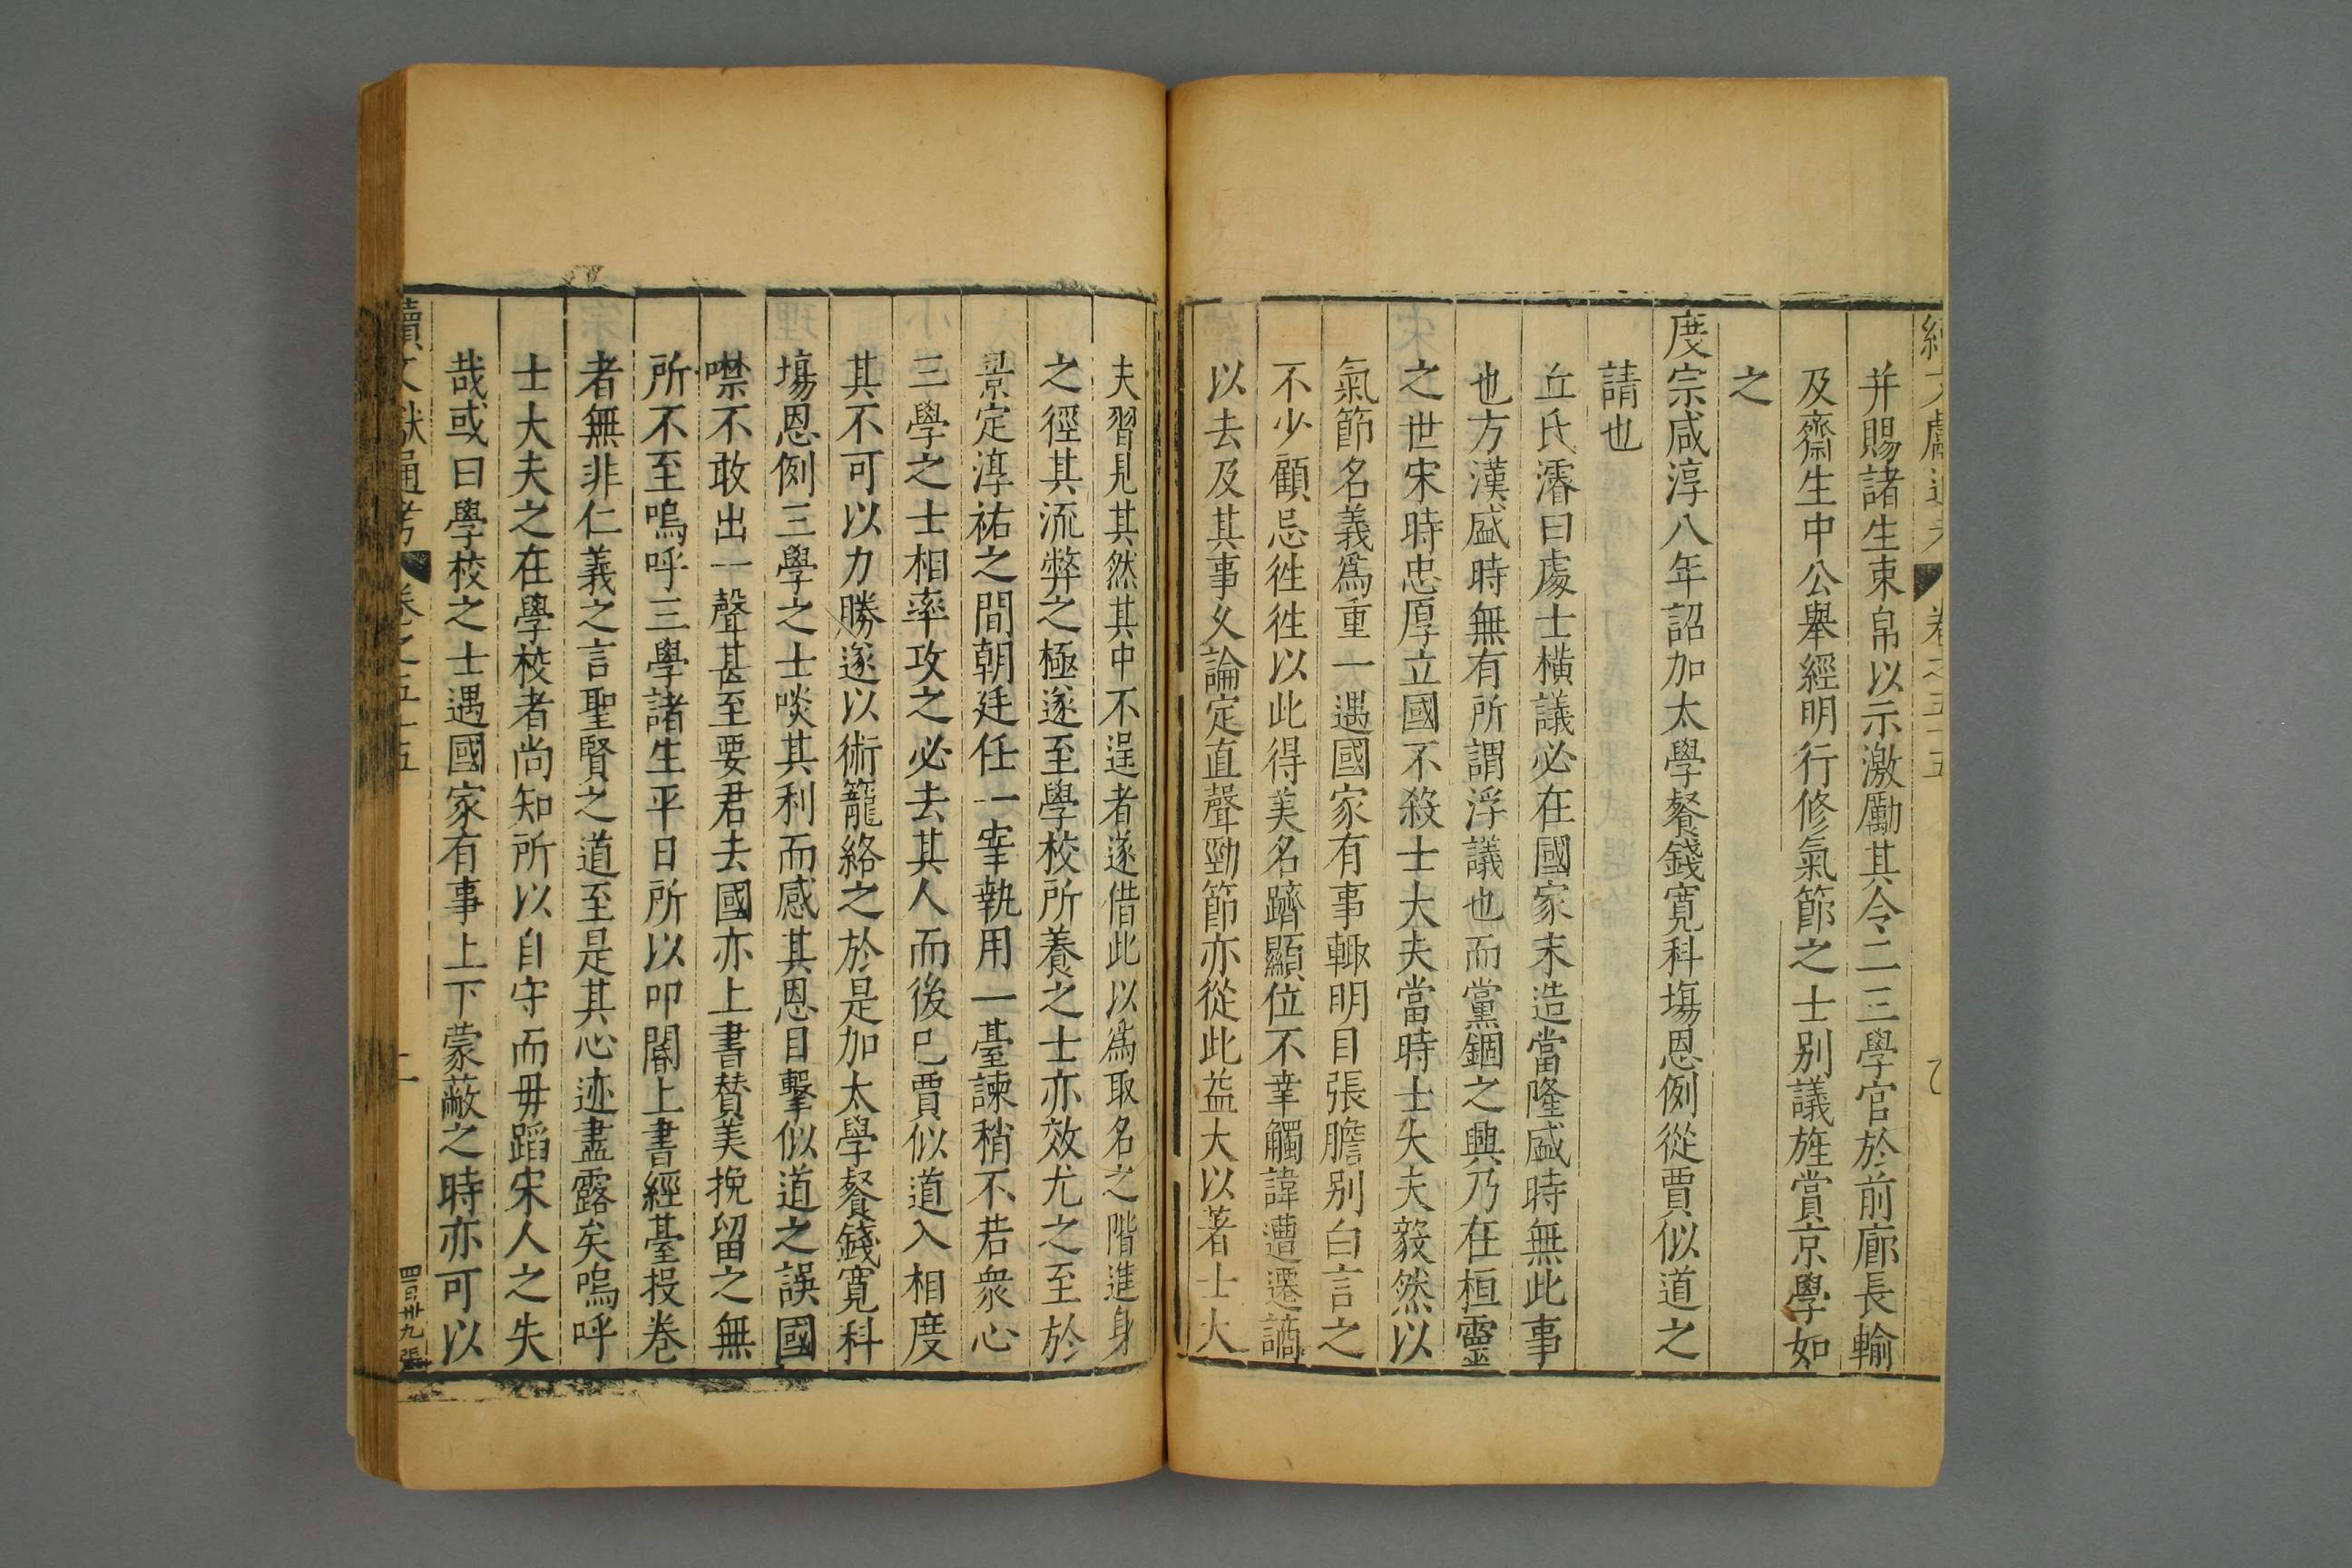 續文獻通考
卷之五十五
并賜諸生束帛以示激勵其令二三學官於前廊長輸
及齋生中公舉經明行修氣節之士別議旌賞京學如
之
度宗咸淳八年詔加太學餐錢寬科塲恩例從賈似道之
請也
丘氏濬曰處士橫議必在國家末造當隆盛時無此事
也方漢盛時無有所謂浮議也而黨錮之興乃在桓靈
之世宋時忠厚立國不殺士大夫當時士大夫毅然以
氣節名義爲重一遇國家有事輙明目張膽别白言之
不少顧忌徃徃以此得美名躋顯位不幸觸諱遭遷謫
以去及其事乆論定直聲勁節亦從此益大以著士大
夫習見其然其中不逞者遂借此以爲取名之階進身
之徑其流弊之極遂至學校所養之士亦效尤之至於
景定淳祐之間朝廷任一宰執用一臺諫稍不若衆心
三學之士相率攻之必去其人而後已賈似道入相度
其不可以力勝遂以術籠絡之於是加太學餐錢寬科
塲恩例三學之士啖其利而感其恩目擊似道之誤國
噤不敢出一聲甚至要君去國亦上書賛美挽留之無
所不至嗚呼三學諸生平日所以叩閽上書經臺投卷
者無非仁義之言聖賢之道至是其心迹盡露矣嗚呼
士大夫之在學校者尚知所以自守而毋蹈宋人之失
哉或曰學校之士遇國家有事上下蒙蔽之時亦可以
續文獻通考
卷之五十五